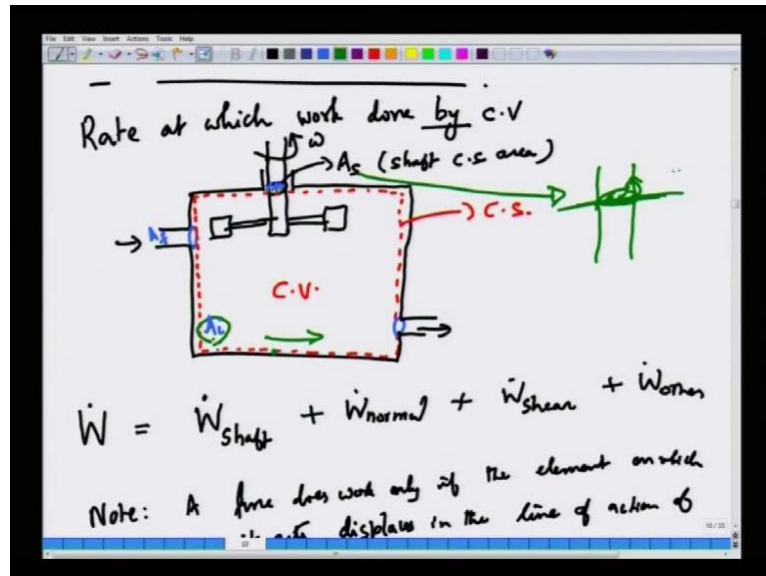 File Edit View Insert Actions Tools Help
Rate at which work done by C.V
ω
As (shaft c.s. area)
C.S.
C.V.
Ẇ = Ẇshaft + Ẇnormal + Ẇshear + Ẇother
Note: A force does work only if the element on which
it acts displaces in the line of action of
10/33
10